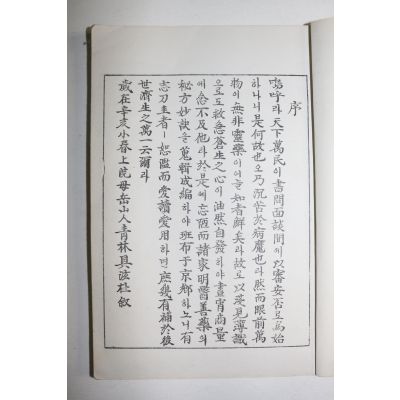 序
嗚呼라天下萬民이書問面談間에以審安否로爲始
하나니是何故也오乃沉苦於病魔也라然而眼前萬
物이無非靈藥이어늘知者鮮矣라故로以淺見薄識
으로도救急蒼生之心이油然自發하야晝宵商量
에念不及他라於是에忘陋而諸家明醫善藥의
秘方妙訣을蒐輯成編하야班布于京鄕하노니有
志刀圭者一恕濫而愛讀愛用하면庶幾有補於後
世濟生之萬一云爾라
歲在辛亥小春上院母岳山人靑林具法杜叙